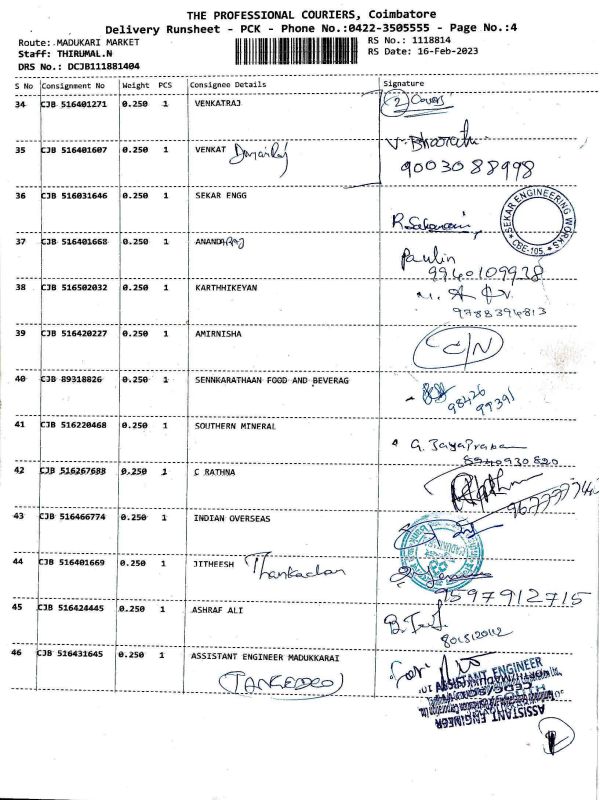 THE PROFESSIONAL COURIERS, Coimbatore
Delivery Runsheet - PCK - Phone No.:0422-3505555 - Page No.:4
Route: MADUKARI MARKET RS No.: 1118814
Staff: THIRUMAL.N RS Date: 16-Feb-2023
DRS No.: DCJB111881404
S No Consignment No Weight PCS Consignee Details Signature
34 CJB 516401271 0.250 1 VENKATRAJ 2 Covers
35 CJB 516401607 0.250 1 VENKAT V. Bharathi
9003088998
36 CJB 516031646 0.250 1 SEKAR ENGG
SEKAR ENGINEERING WORKS CBE-105.
37 CJB 516401668 0.250 1 ANANDARaj Paulin
9940109928
38 CJB 516502032 0.250 1 KARTHHIKEYAN
9788394813
39 CJB 516420227 0.250 1 AMIRNISHA C/N
40 CJB 89318826 0.250 1 SENNKARATHAAN FOOD AND BEVERAG
98426
99391
41 CJB 516220468 0.250 1 SOUTHERN MINERAL G. JayaPraba
8940930820
42 CJB 516267688 0.250 1 C RATHNA
43 CJB 516466774 0.250 1 INDIAN OVERSEAS
44 CJB 516401669 0.250 1 JITHEESH Thankachan
9597912715
45 CJB 516424445 0.250 1 ASHRAF ALI
8015120112
46 CJB 516431645 0.250 1 ASSISTANT ENGINEER MADUKKARAI
(TANGEDCO)
ASSISTANT ENGINEER
ASSISTANT ENGINEER